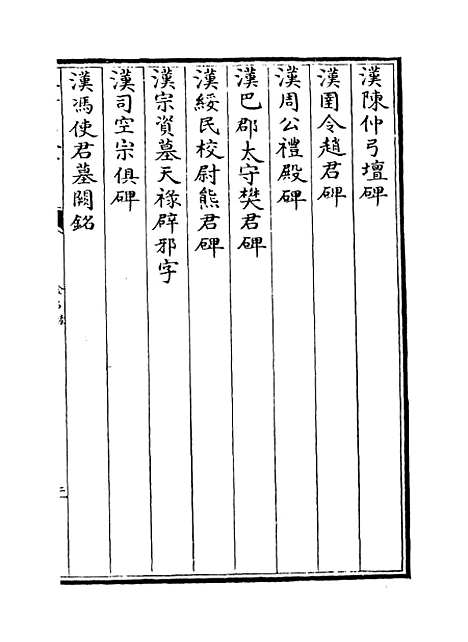 漢陳仲弓壇碑
漢圉令趙君碑
漢周公禮殿碑
漢巴郡太守樊君碑
漢綏民校尉熊君碑
漢宗資墓天祿辟邪字
漢司空宗俱碑
漢馮使君墓闕銘